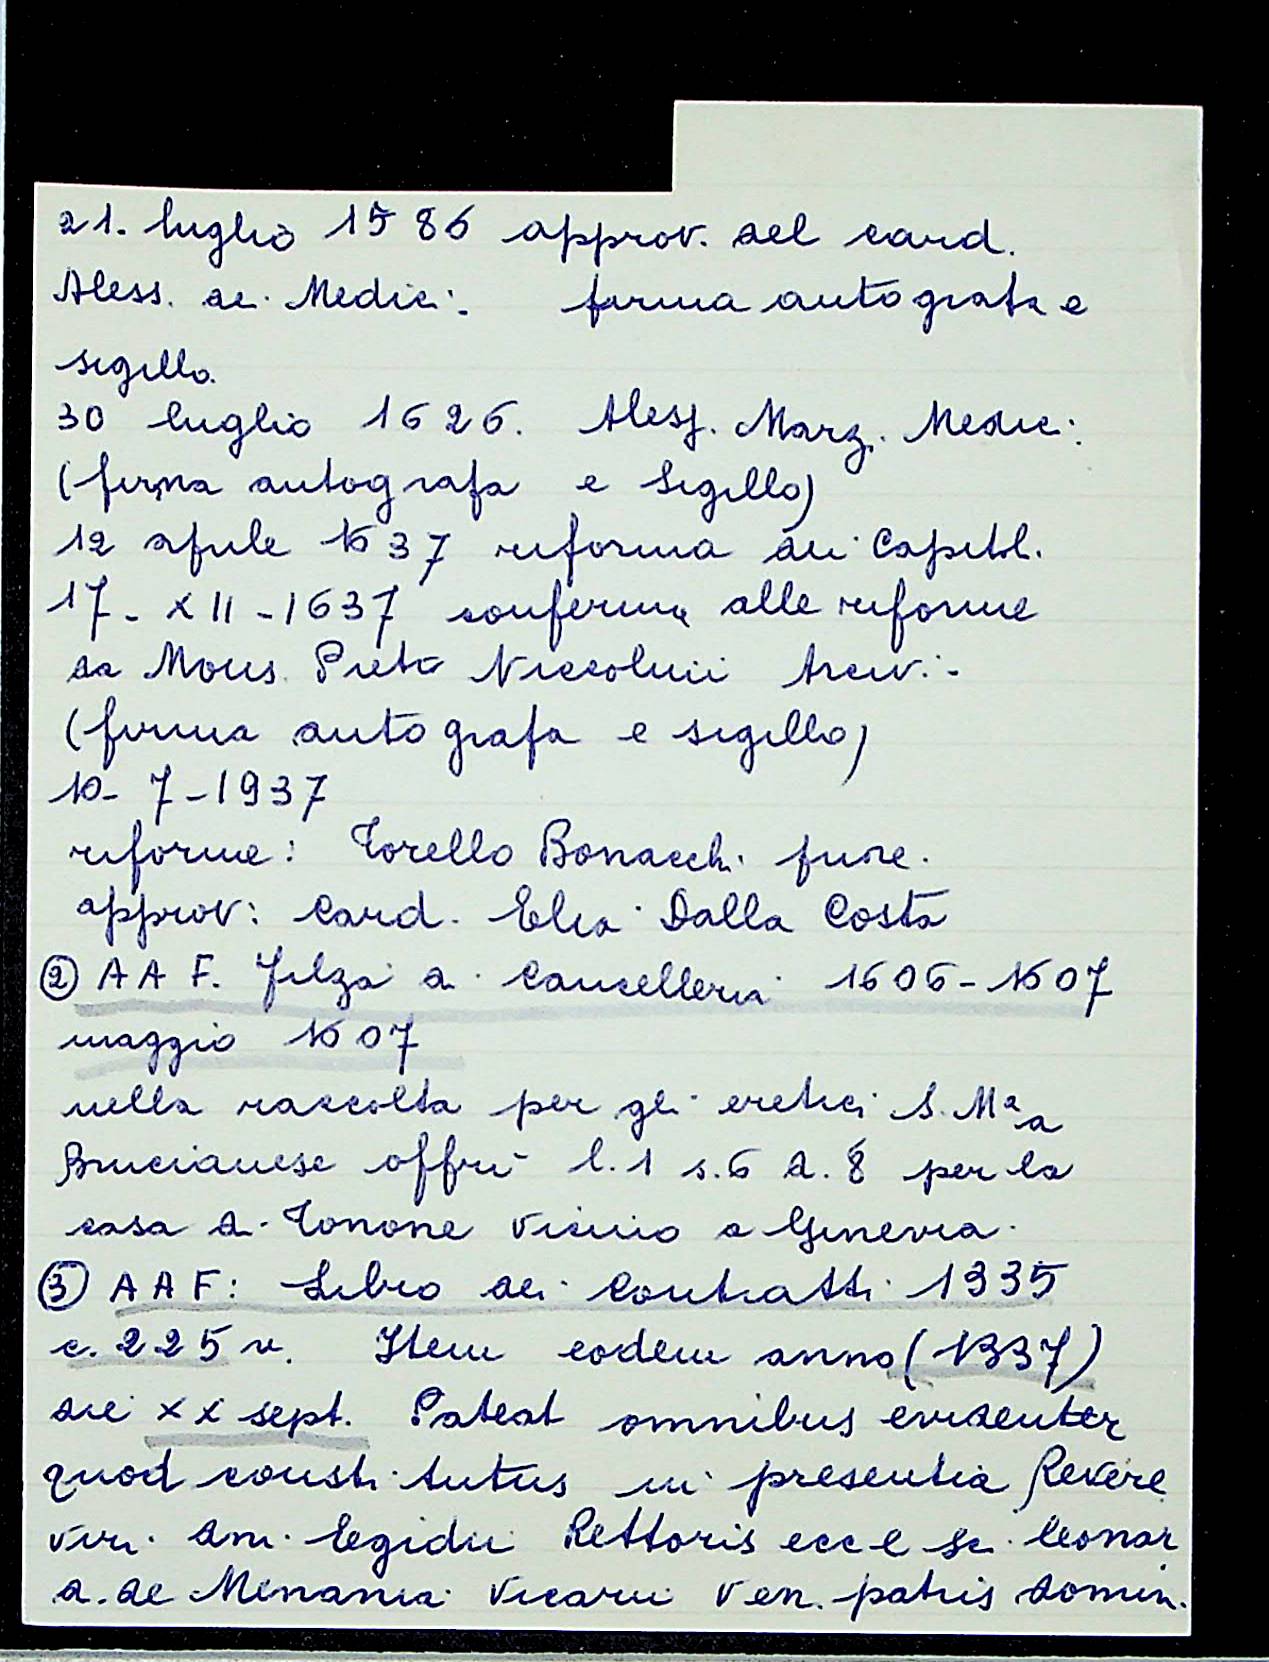 21. luglio 1586 approv. del card.
Aless. de. Medici: firma autografa e
sigillo.
30 luglio 1626. Aless. Marz. Medici:
(firma autografa e sigillo)
12 aprile 1637 riforma dei Capitol.
17-XII-1637 conferma alle riforme
da Mons. Pietro Niccolini Arciv.-
(firma autografa e sigillo)
10-7-1937
riforme: Torello Bonacchi funz.
approv: Card. Elia Dalla Costa
② AAF. Filza di Cancelleria 1606-1607
maggio 1607
nella raccolta per gli eretici S. Mª a
Brucianese offrì l.1 s.6 d.8 per la
casa di Tonone vicino a Ginevra.
③ AAF: Libro dei Contratti 1335
c. 225 v. Item eodem anno (1337)
die xx sept. Pateat omnibus evidenter
quod constitutus in presentia Revere
viri dni. Egidii Rettoris eccl sci. leonar
d. de Menania vicarii ven. patris domin.